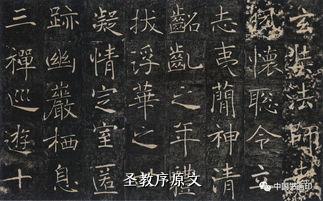 玄奘法師者
懷聰令立
志夷簡神清
齠齔之年體
拔浮華之
凝情定室匿
跡幽巖栖息
三禪巡遊十
圣教序原文